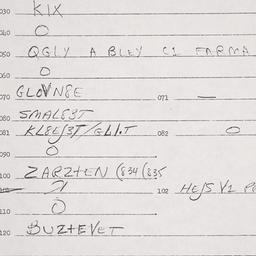 030 KIX
040 O
050 QGLY A BLEY C1 FARMA
060 O
070 GLOVN8E 071 —
080 SMAL83T
081 KL8E/3T/GLI.T 082 O
090 O
100 ZARZTEN (834 (835
102 HE/S V1
110 O
120 BUZTEVET